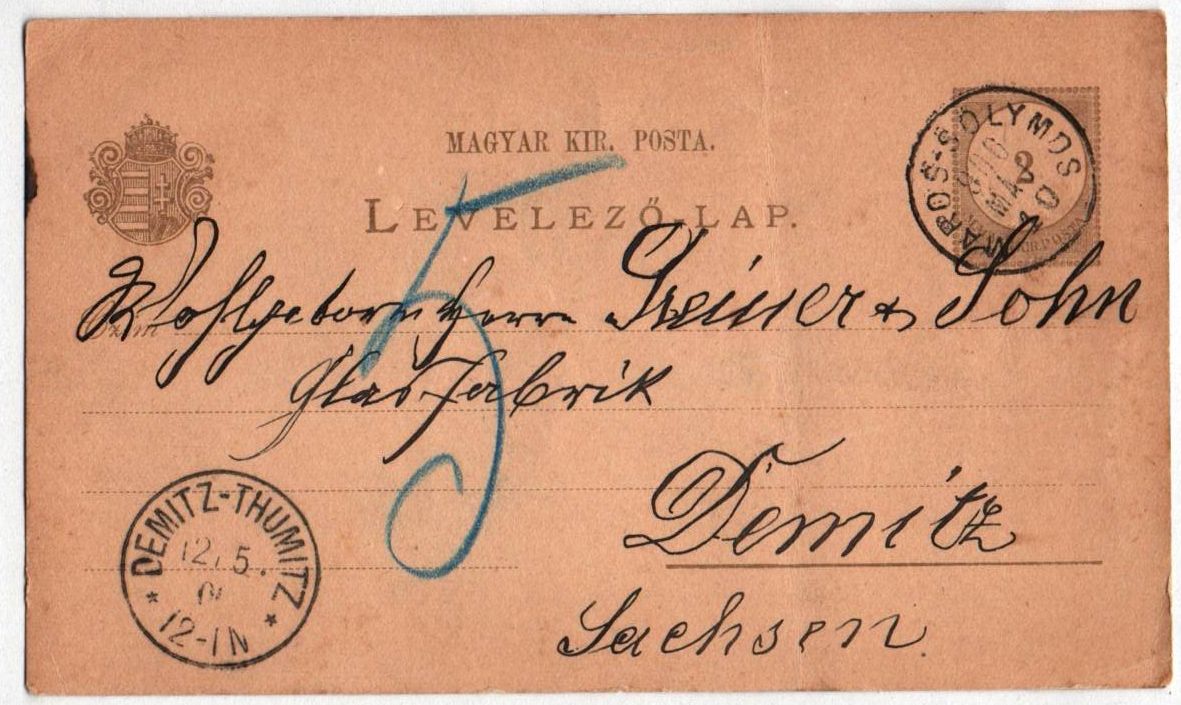 MAGYAR KIR. POSTA.
LEVELEZŐ-LAP.
MAROS-SÓLYMOS
Wohlgeborn Herrn Greiner & Sohn
Glasfabrik
Demitz
Sachsen.
5
DEMITZ-THUMITZ
12/5.
12-1N